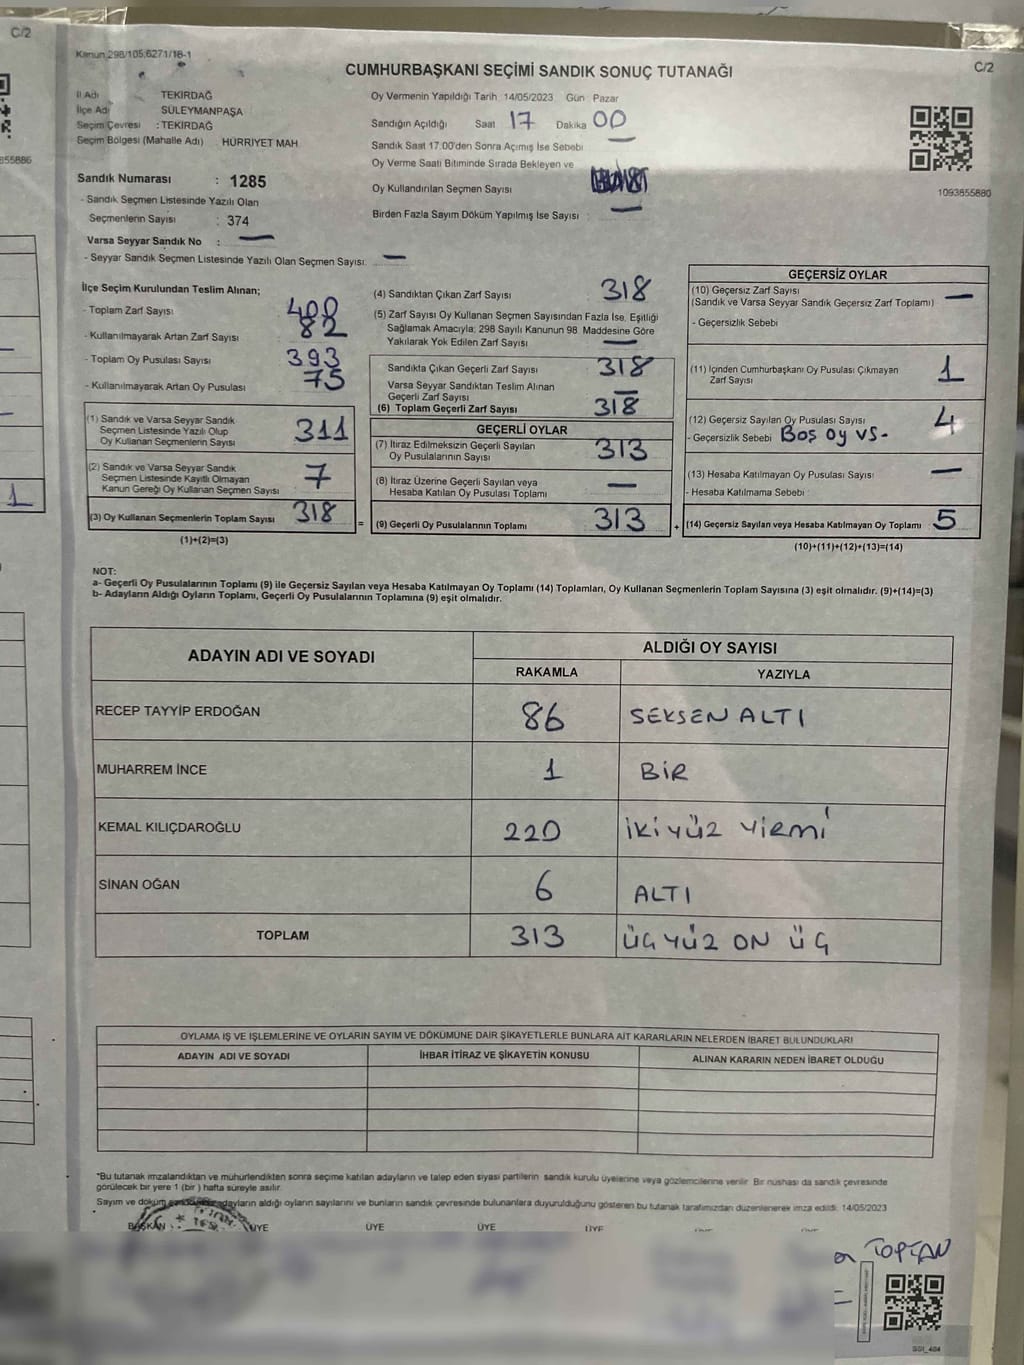 C/2
855886
Kanun 298/105;6271/18-1
C/2
CUMHURBAŞKANI SEÇİMİ SANDIK SONUÇ TUTANAĞI
İl Adı TEKİRDAĞ
İlçe Adı SÜLEYMANPAŞA
Seçim Çevresi : TEKİRDAĞ
Seçim Bölgesi (Mahalle Adı) HÜRRİYET MAH.
Sandık Numarası : 1285
- Sandık Seçmen Listesinde Yazılı Olan
Seçmenlerin Sayısı : 374
Varsa Seyyar Sandık No : —
- Seyyar Sandık Seçmen Listesinde Yazılı Olan Seçmen Sayısı: —
Oy Vermenin Yapıldığı Tarih 14/05/2023 Gün Pazar
Sandığın Açıldığı Saat 17 Dakika 00
Sandık Saat 17.00'den Sonra Açmış İse Sebebi —
Oy Verme Saati Bitiminde Sırada Bekleyen ve
Oy Kullandırılan Seçmen Sayısı —
Birden Fazla Sayım Döküm Yapılmış İse Sayısı :
1093855880
İlçe Seçim Kurulundan Teslim Alınan;
- Toplam Zarf Sayısı 400
- Kullanılmayarak Artan Zarf Sayısı 82
- Toplam Oy Pusulası Sayısı 393
- Kullanılmayarak Artan Oy Pusulası 75
(1) Sandık ve Varsa Seyyar Sandık
Seçmen Listesinde Yazılı Olup
Oy Kullanan Seçmenlerin Sayısı 311
(2) Sandık ve Varsa Seyyar Sandık
Seçmen Listesinde Kayıtlı Olmayan
Kanun Gereği Oy Kullanan Seçmen Sayısı 7
(3) Oy Kullanan Seçmenlerin Toplam Sayısı 318
(1)+(2)=(3)
(4) Sandıktan Çıkan Zarf Sayısı 318
(5) Zarf Sayısı Oy Kullanan Seçmen Sayısından Fazla İse, Eşitliği
Sağlamak Amacıyla; 298 Sayılı Kanunun 98. Maddesine Göre
Yakılarak Yok Edilen Zarf Sayısı —
Sandıkta Çıkan Geçerli Zarf Sayısı 318
Varsa Seyyar Sandıktan Teslim Alınan
Geçerli Zarf Sayısı —
(6) Toplam Geçerli Zarf Sayısı 318
GEÇERLİ OYLAR
(7) İtiraz Edilmeksizin Geçerli Sayılan
Oy Pusulalarının Sayısı 313
(8) İtiraz Üzerine Geçerli Sayılan veya
Hesaba Katılan Oy Pusulası Toplamı —
= (9) Geçerli Oy Pusulalarının Toplamı 313
GEÇERSİZ OYLAR
(10) Geçersiz Zarf Sayısı
(Sandık ve Varsa Seyyar Sandık Geçersiz Zarf Toplamı) —
- Geçersizlik Sebebi
(11) İçinden Cumhurbaşkanı Oy Pusulası Çıkmayan
Zarf Sayısı 1
(12) Geçersiz Sayılan Oy Pusulası Sayısı 4
- Geçersizlik Sebebi Boş oy vs-
(13) Hesaba Katılmayan Oy Pusulası Sayısı —
- Hesaba Katılmama Sebebi
+ (14) Geçersiz Sayılan veya Hesaba Katılmayan Oy Toplamı 5
(10)+(11)+(12)+(13)=(14)
1
NOT:
a- Geçerli Oy Pusulalarının Toplamı (9) ile Geçersiz Sayılan veya Hesaba Katılmayan Oy Toplamı (14) Toplamları, Oy Kullanan Seçmenlerin Toplam Sayısına (3) eşit olmalıdır. (9)+(14)=(3)
b- Adayların Aldığı Oyların Toplamı, Geçerli Oy Pusulalarının Toplamına (9) eşit olmalıdır.
ADAYIN ADI VE SOYADI ALDIĞI OY SAYISI
RAKAMLA YAZIYLA
RECEP TAYYİP ERDOĞAN 86 SEKSEN ALTI
MUHARREM İNCE 1 BİR
KEMAL KILIÇDAROĞLU 220 İKİ YÜZ YİRMİ
SİNAN OĞAN 6 ALTI
TOPLAM 313 ÜÇ YÜZ ON ÜÇ
OYLAMA İŞ VE İŞLEMLERİNE VE OYLARIN SAYIM VE DÖKÜMÜNE DAİR ŞİKAYETLERLE BUNLARA AİT KARARLARIN NELERDEN İBARET BULUNDUKLARI
ADAYIN ADI VE SOYADI İHBAR İTİRAZ VE ŞİKAYETİN KONUSU ALINAN KARARIN NEDEN İBARET OLDUĞU
*Bu tutanak imzalandıktan ve mühürlendikten sonra seçime katılan adayların ve talep eden siyasi partilerin sandık kurulu üyelerine veya gözlemcilerine verilir. Bir nüshası da sandık çevresinde
görülecek bir yere 1 (bir) hafta süreyle asılır.
Sayım ve döküm adayların aldığı oyların sayılarını ve bunların sandık çevresinde bulunanlara duyurulduğunu gösteren bu tutanak tarafımızdan düzenlenerek imza edildi. 14/05/2023
BAŞKAN ÜYE ÜYE ÜYE ÜYE
TOPTAN